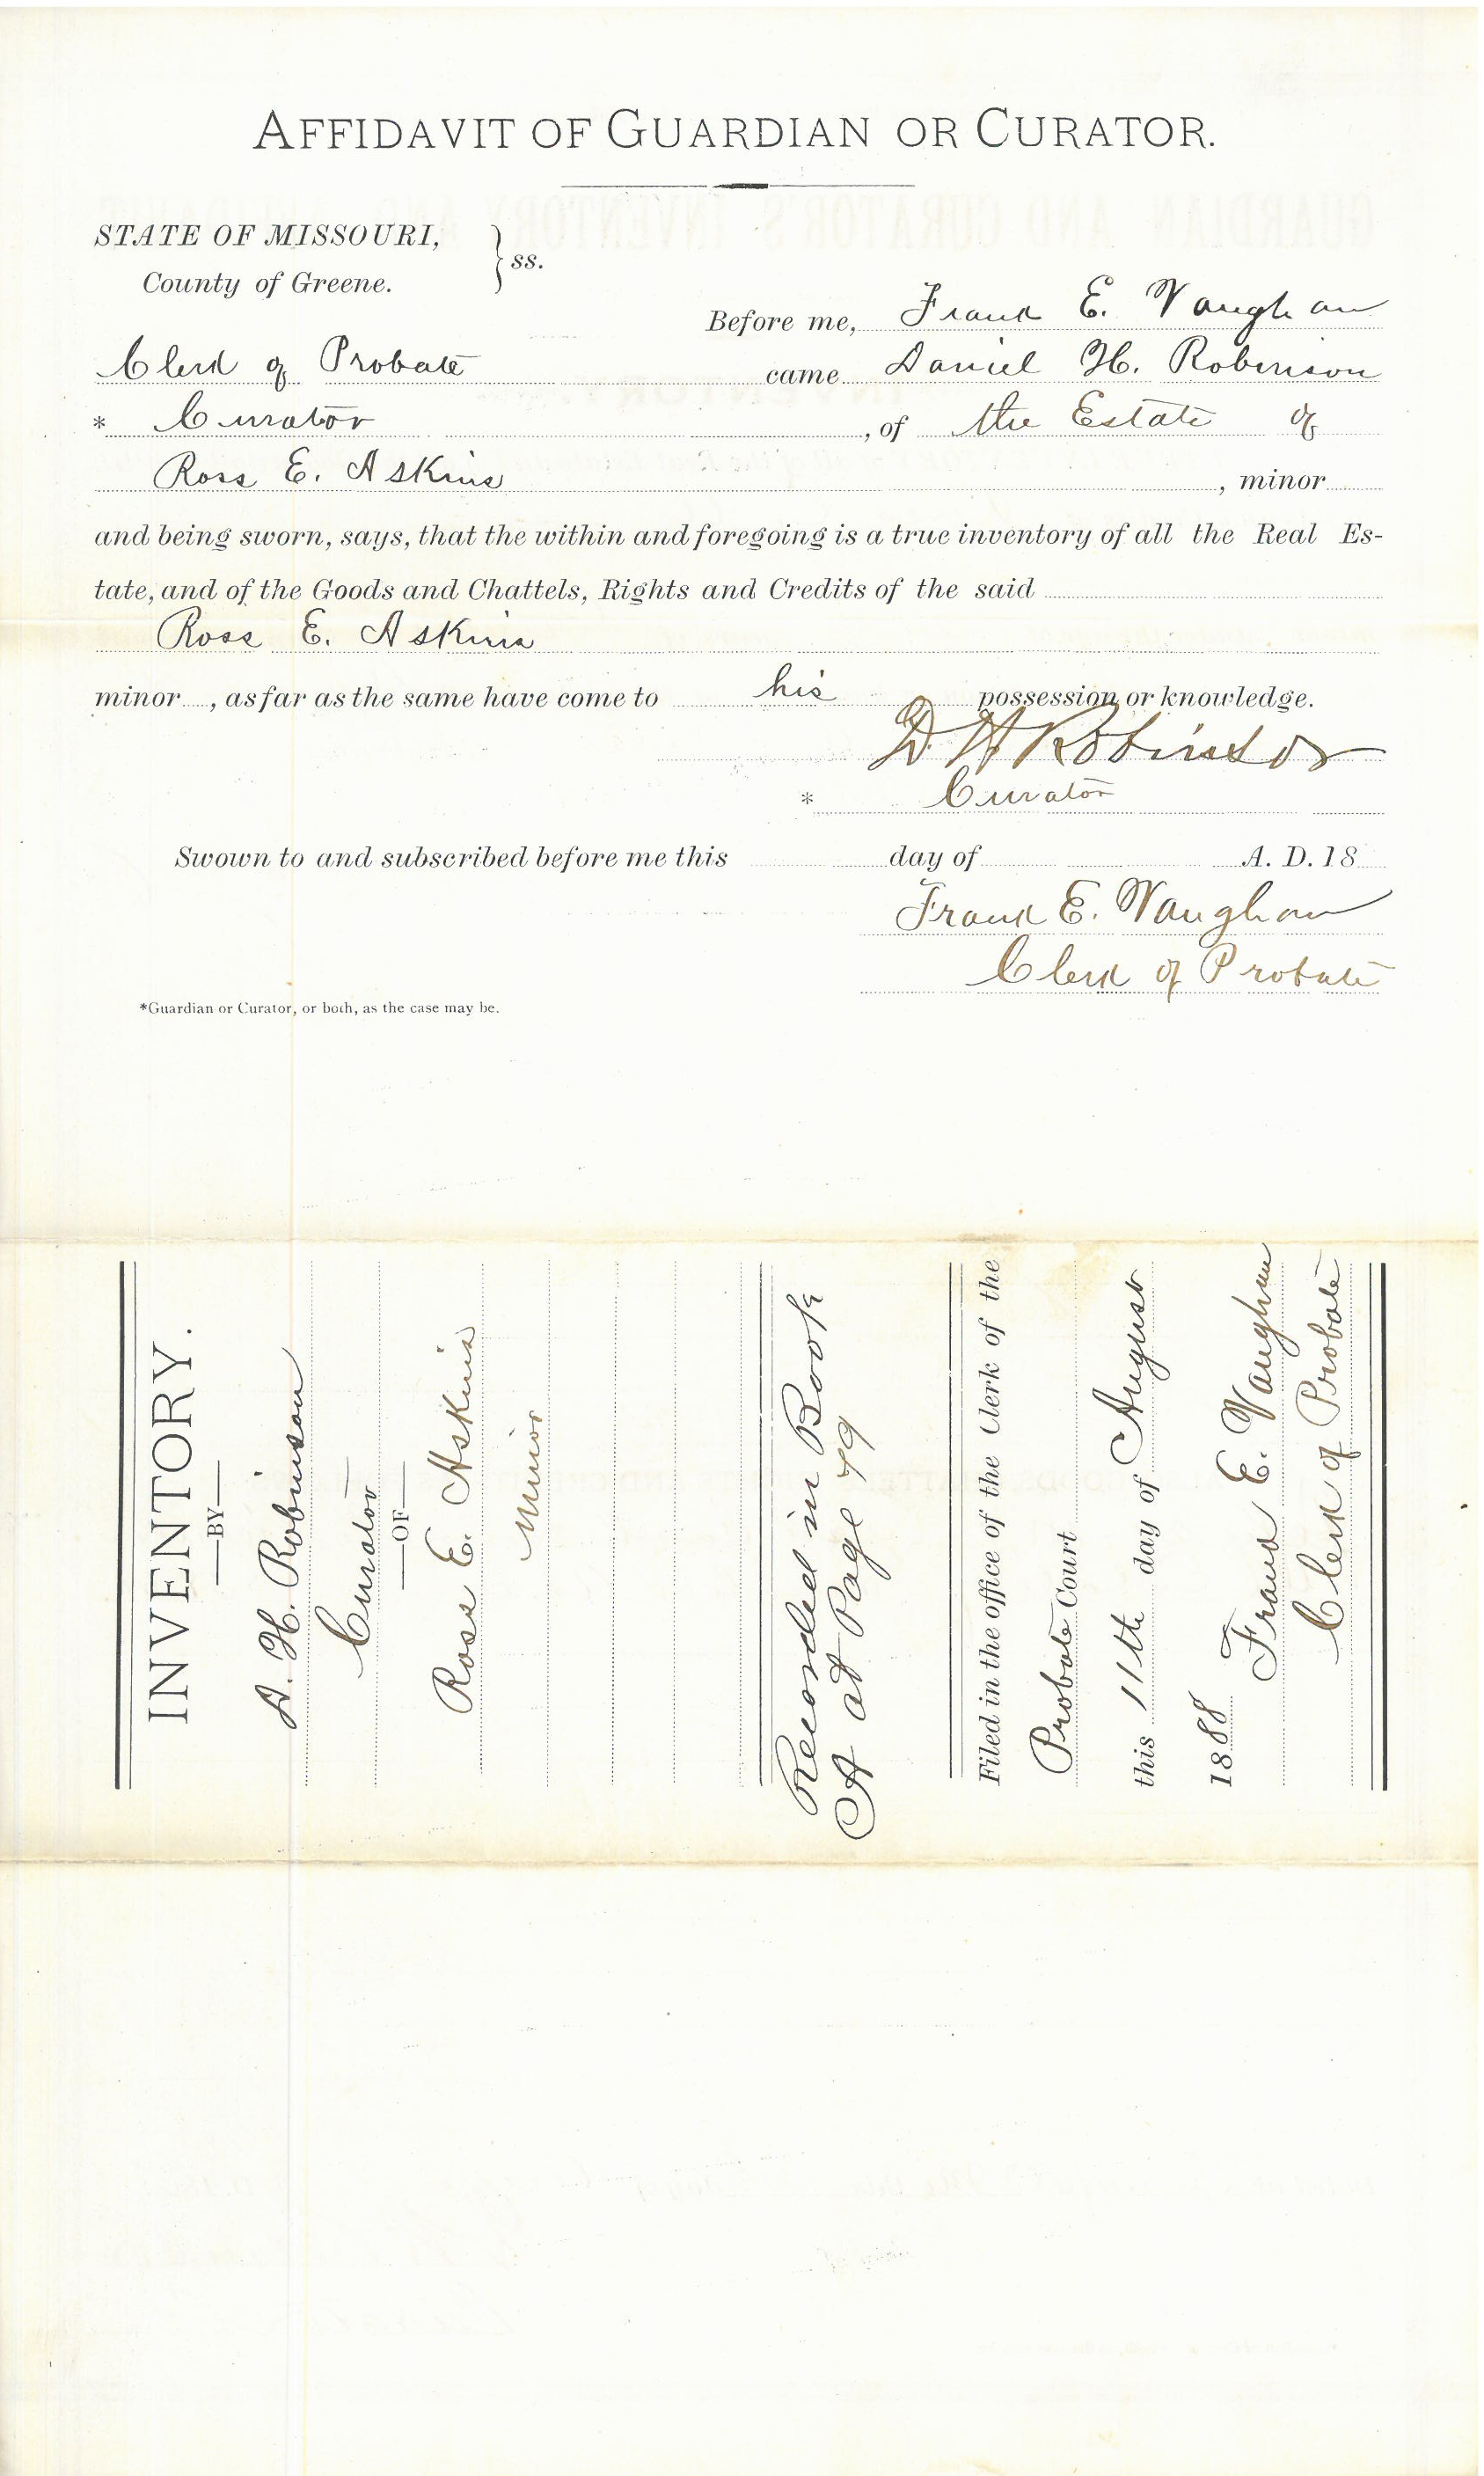 AFFIDAVIT OF GUARDIAN OR CURATOR.
STATE OF MISSOURI,
County of Greene. } ss.
Before me, Frank E. Vaughan
Clerk of Probate came Daniel H. Robinson
* Curator , of the Estate of
Ross E. Askins , minor
and being sworn, says, that the within and foregoing is a true inventory of all the Real Es-
tate, and of the Goods and Chattels, Rights and Credits of the said
Ross E. Askins
minor , as far as the same have come to his possession or knowledge.
D H Robinson
* Curator
Swown to and subscribed before me this day of A. D. 18
Frank E. Vaughan
Clerk of Probate
*Guardian or Curator, or both, as the case may be.
INVENTORY.
—BY—
D. H. Robinson
Curator
—OF—
Ross E. Askins
Minor
Recorded in Book
A at Page 79
Filed in the office of the Clerk of the
Probate Court
this 11th day of August
1888
Frank E. Vaughan
Clerk of Probate